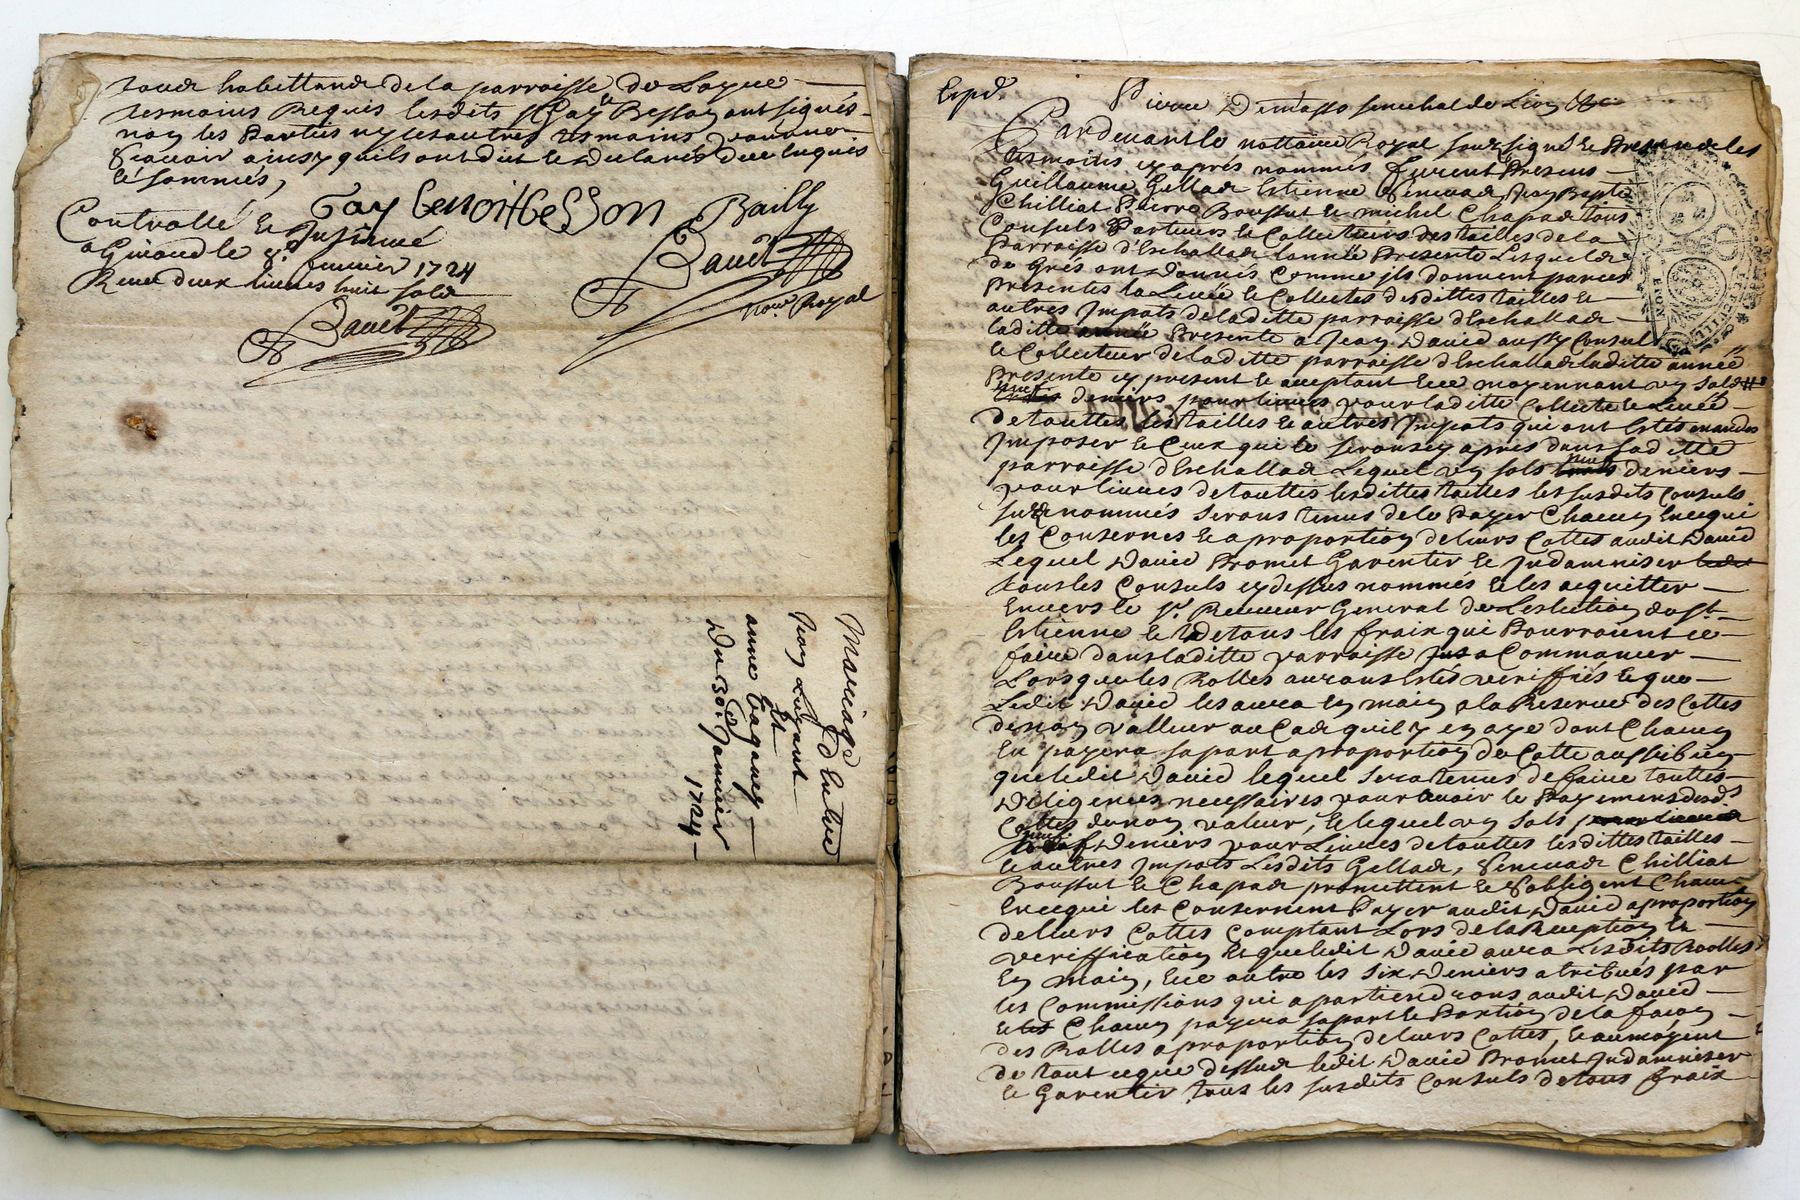 tous habittants de la parroisse de Laque
tesmoins Requis lesdits Gay et Besson ont signés
non les Parties ny les autres tesmoins pour ne
scavoir ainsy quils ont dit et declarés dece Enquis
et sommés,
Gay benoit beSSon Bailly
Controllé et Insinué
a Giraud le 8e fevrier 1724
Receu deux livres huit sols
Bauet
Bauet
nore Royal
Mariage d'Entre
Jean
Et
anne Taganey
Du 30e Janvier
1724
Expd.
Pierre Demasso senechal de Lion &c
Pardevant le nottaire Royal souzsigné et Presence des
tesmoins cy après nommés furent Presens
Guillaume Gellade Estienne Senevade Jean Bapte
Chilliat Pierre Boussut et michel Chapade tous
Consuls Porteurs et Collecteurs des tailles de la
Parroisse d'Eschallade lannée Presente Lesquels
de Grés ont donnés comme ils donnent par ces
Presentes la Levée et Collectes desdittes tailles et
autres Impots deladitte parroisse d'Eschallade
laditte année Presente a Jean David aussy Consul
et Collecteur deladitte parroisse d'Eschallade laditte année
Presente cy present et acceptant Et ce moyennant un sold
neuf deniers pour livres pour laditte Collecte et Levée
de touttes les tailles et autres Impots qui ont Estés mandés
Imposer et Ceux qui le seront cy apres dans laditte
parroisse d'Eschallade Lequel un sols neuf deniers
pour livres de touttes lesdittes tailles les susdits Consuls
susnommés seront tenus de le Payer Chacun En ce qui
les Conserne et a proportion de leurs Cottes audit David
Lequel David Promet Garentir et Indamniser
tous les Consuls cy dessus nommés et les acquitter
Envers le sr. Receveur General de Leslection de st.
Estienne et de tous les fraix qui Pourraient ce
faire dans laditte parroisse Jusa Commancer
Lorsque les Rolles auront Estés veriffiés et que
Ledit David les aura En main a la Reserve des Cottes
de non valleur au Cas quil y en aye dont Chacun
En payera sa part a proportion de Cotte aussi bien
que ledit David lequel sera tenus de faire touttes
Diligences necessaires pour avoir le Payement desds
Cottes de non valeur, Et lequel un sols
neuf Deniers pour Livres de touttes lesdittes tailles
et autres Impots Lesdits Gellade, Senevade Chilliat
Boussut et Chapade promettent et s'obligent Chacun
En ce qui les Consernent Payer audit David a proportion
de leurs Cottes Comptant Lors de la Reception et
veriffication Et que ledit David aura Lesdits Roolles
En main, Et ce outre les six deniers atribués par
les Commissions qui apartiendrons audit David
et Chacun payera sa part et Portion de la facon
des Rolles a proportion de leurs Cottes, et aumoyent
de tout ce que dessus ledit David Promet Indamniser
et Garentir tous les susdits Consuls de tous fraix